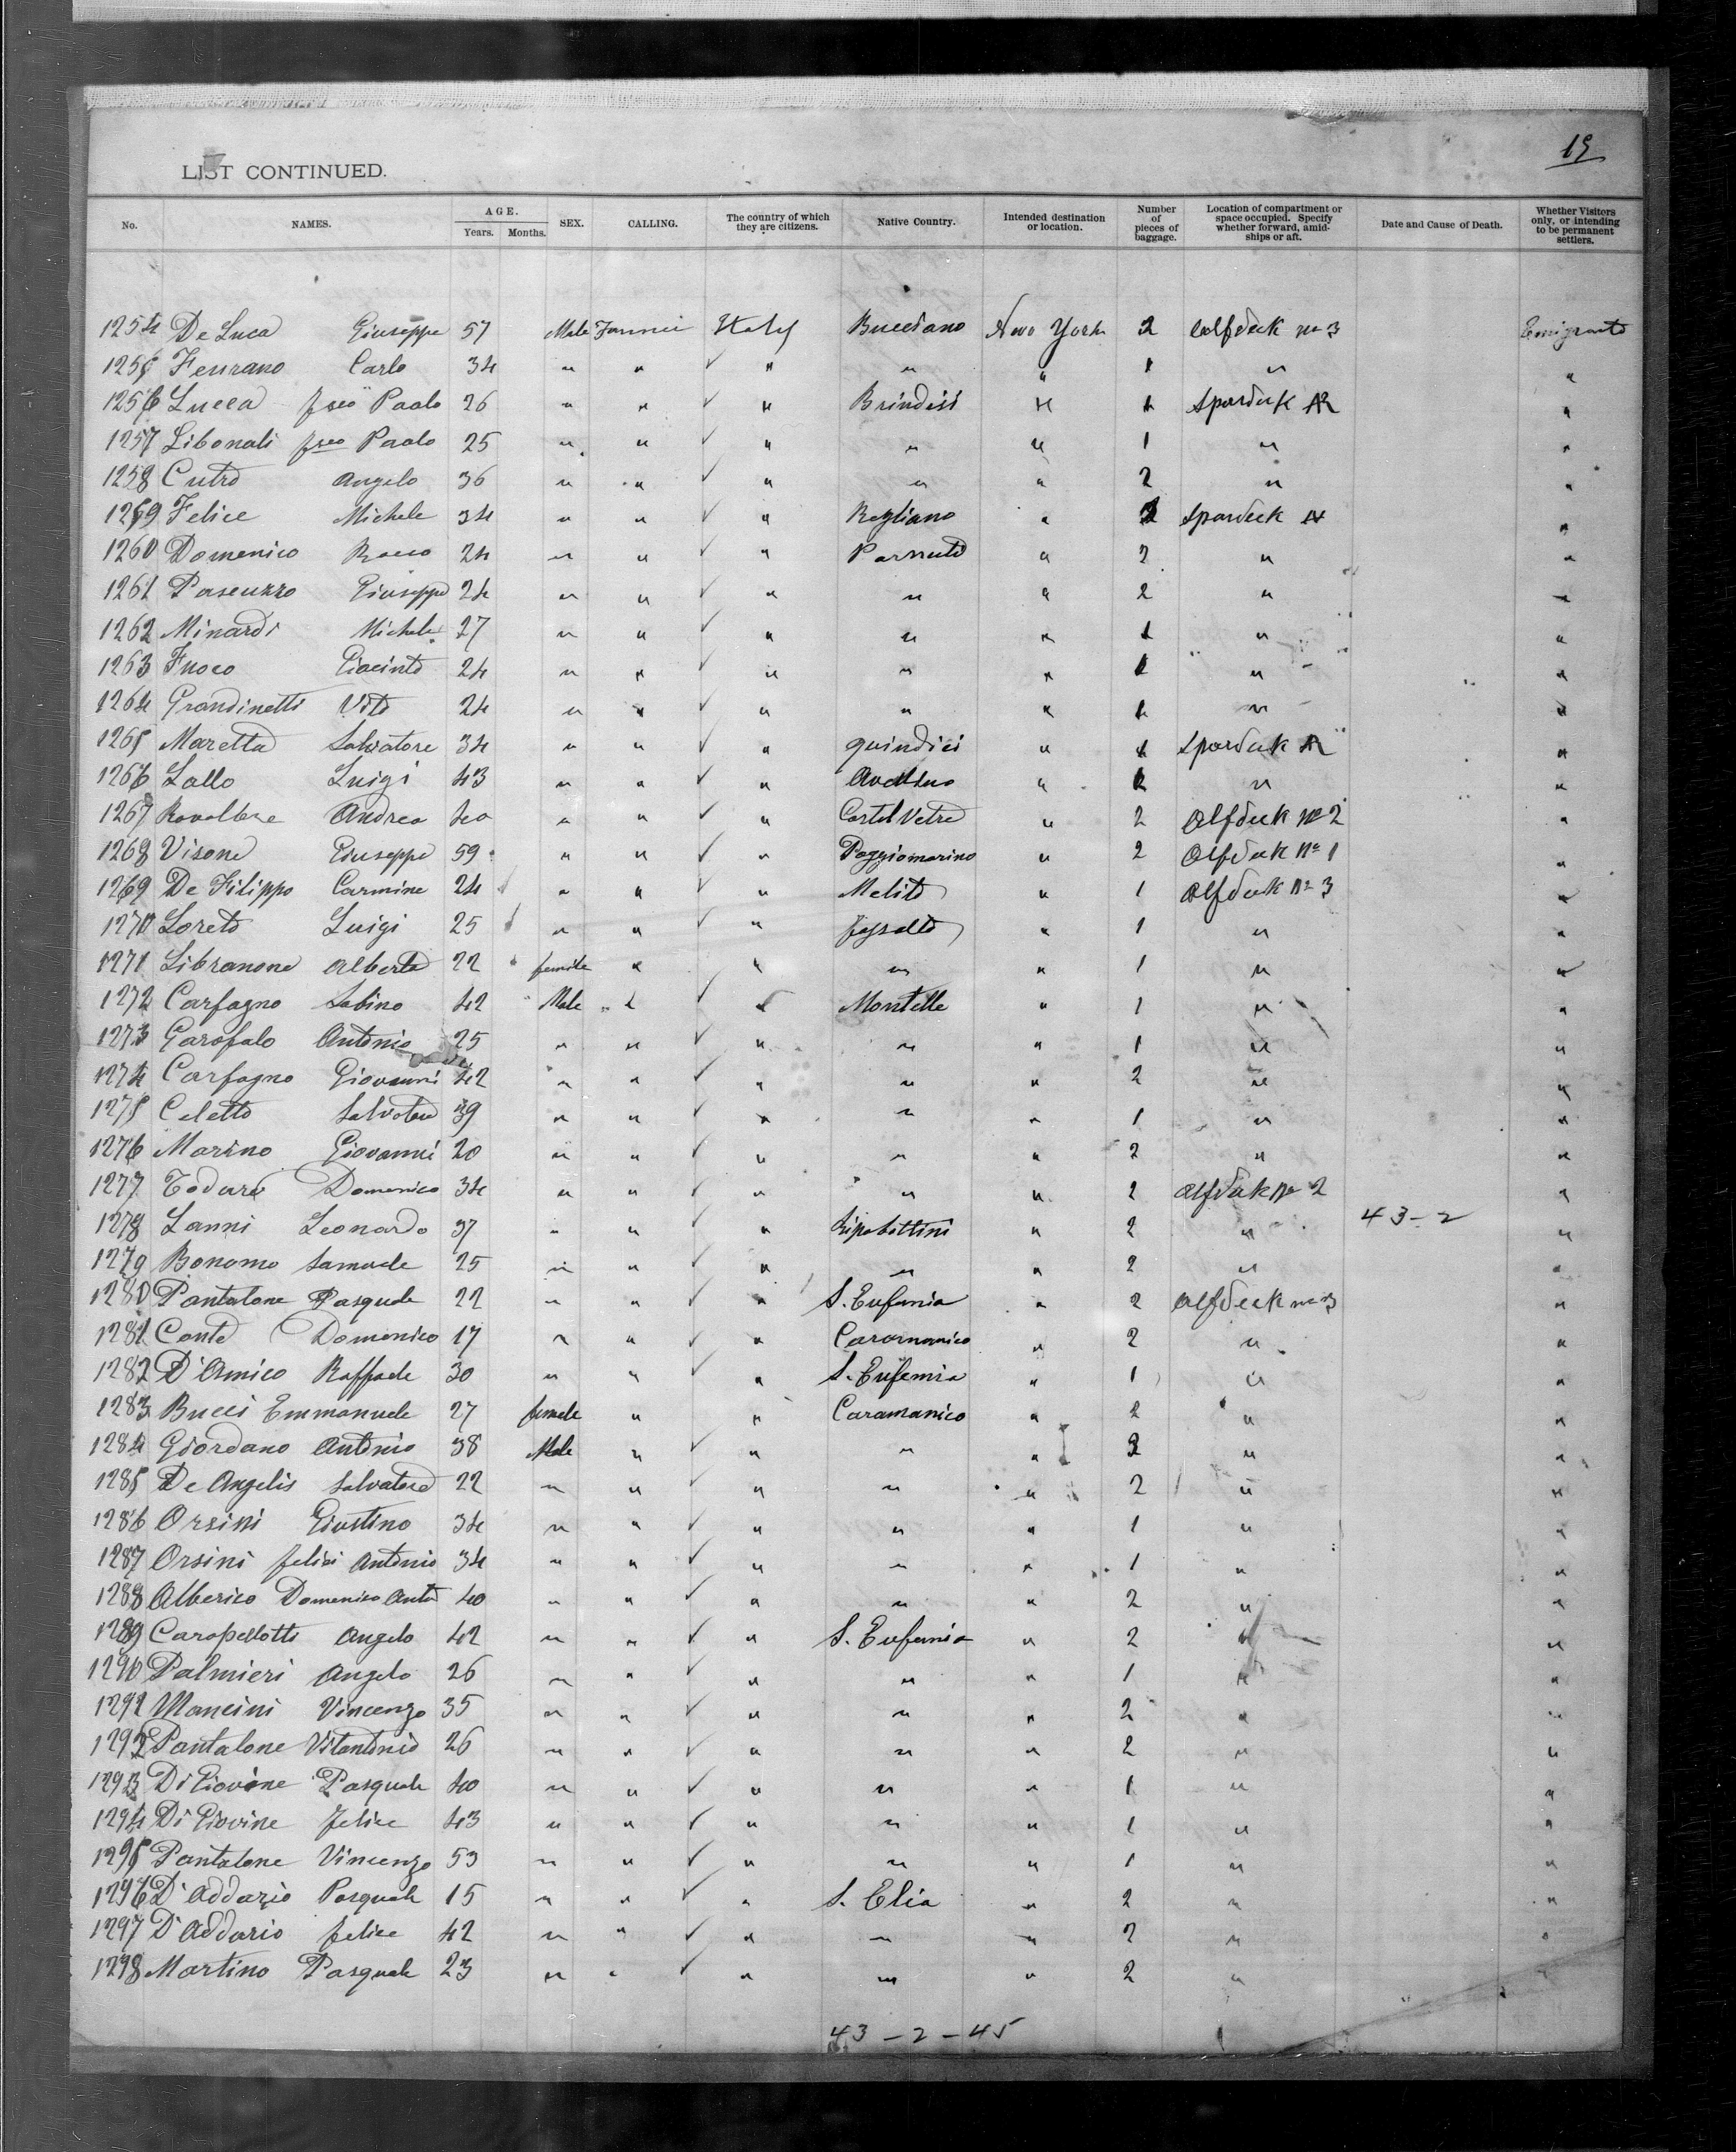 19
LIST CONTINUED.
No. NAMES. AGE. Years. Months. SEX. CALLING. The country of which they are citizens. Native Country. Intended destination or location. Number of pieces of baggage. Location of compartment or space occupied. Specify whether forward, amidships or aft. Date and Cause of Death. Whether Visitors only, or intending to be permanent settlers.
1254 De Luca Giuseppe 57 Male Italy Bucciano New York 2 No 3 Emigrants
1255 Ferrano Carlo 34 " " " " " 1 " "
1256 Lucca Paolo 26 " " " Brindisi " 1 "
1257 Libonati Paolo 25 " " " " " 1 " "
1258 Cutro Angelo 36 " " " " " 2 " "
1259 Felice Michele 34 " " " Rogliano " "
1260 Domenico Rocco 24 " " " " 2 " "
1261 Pascuzzo Giuseppe 24 " " " " " 2 " "
1262 Minardi Michele 27 " " " " " 1 " "
1263 Fuoco Giacinto 24 " " " " " 1 " "
1264 Grandinetti Vito 24 " " " " " 1 " "
1265 Maretta Salvatore 34 " " " quindici " 1 "
1266 Lallo Luigi 43 " " " Avellino " " "
1267 Andrea 40 " " " Castel Vetre " 2 No 2 "
1268 Visone Giuseppe 59 " " " Poggiomarino " 2 No 1 "
1269 De Filippo Carmine 24 " " " Melito " 1 No 3 "
1270 Loreto Luigi 25 " " " " 1 " "
1271 Libranone Alberta 22 female " " " " 1 " "
1272 Carfagno Sabino 42 Male " " Montella " 1 " "
1273 Garofalo Antonio 25 " " " " " 1 " "
1274 Carfagno Giovanni 42 " " " " " 2 " "
1275 Celetto 39 " " " " " 1 " "
1276 Marino Giovanni 20 " " " " " 2 " "
1277 Todaro Domenico 34 " " " " " 2 No 2 "
1278 Lanni Leonardo 37 " " " Ripabottini " 2 " 43-2 "
1279 Bonomo Samuele 25 " " " " " 2 " "
1280 Pantalone Pasquale 22 " " " S. Eufemia " 2 No 3 "
1281 Conte Domenico 17 " " " Caramanico " 2 " "
1282 D'Amico Raffaele 30 " " " S. Eufemia " 1 " "
1283 Bucci Emmanuele 27 female " " Caramanico " 2 " "
1284 Giordano Antonio 38 Male " " " " 2 " "
1285 De Angelis Salvatore 22 " " " " " 2 " "
1286 Orsini Giustino 34 " " " " " 1 " "
1287 Orsini Felici Antonio 34 " " " " " 1 " "
1288 Alberico Domenico Anto 40 " " " " " 2 " "
1289 Carapellotti Angelo 42 " " " S. Eufemia " 2 " "
1290 Palmieri Angelo 26 " " " " " 1 " "
1291 Mancini Vincenzo 35 " " " " " 2 " "
1292 Pantalone Vitantonio 26 " " " " " 2 " "
1293 Di Giovine Pasquale 40 " " " " " 1 " "
1294 Di Giovine Felice 43 " " " " " 1 " "
1295 Pantalone Vincenzo 53 " " " " " 1 " "
1296 D'Addario Pasquale 15 " " " S. Elia " 2 " "
1297 D'Addario felice 42 " " " " " 2 " "
1298 Martino Pasquale 23 " " " " " 2 " "
43-2-45